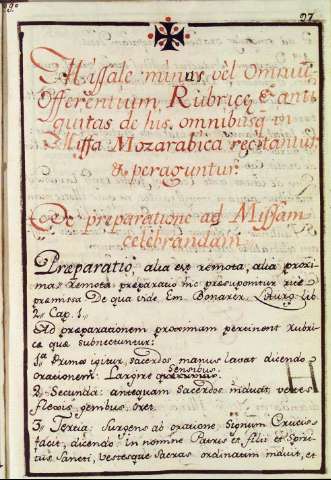 97
Missale minus vel Omniũ
Offerentium, Rubricę, & anti
quitas de his, omnibusq in
Missa Mozarabica recitantur
& peraguntur.
De preparatione ad Missam
celebrandam
Præparatio, alia est remota, alia proxi
ma: Remota preparatio hic presuponitur rite
premissa De qua vide Em. Bonarer. Liturg. lib.
2. Cap. 1.
Ad preparationem proximam pertinent rubri
cæ quæ subnectuntur:
1ª Primo igitur, sacerdos manus lavat dicendo
orationem: Largire sensibus
2. Secunda: antequam Sacerdos induat vestes
flexis genibus oret.
3. Tertia: Surgens ab oratione Signum Crucis
facit, dicendo: in nomine Patris et filii et Spiri
tus Sancti, vestesque Sacras ordinatim induit, et